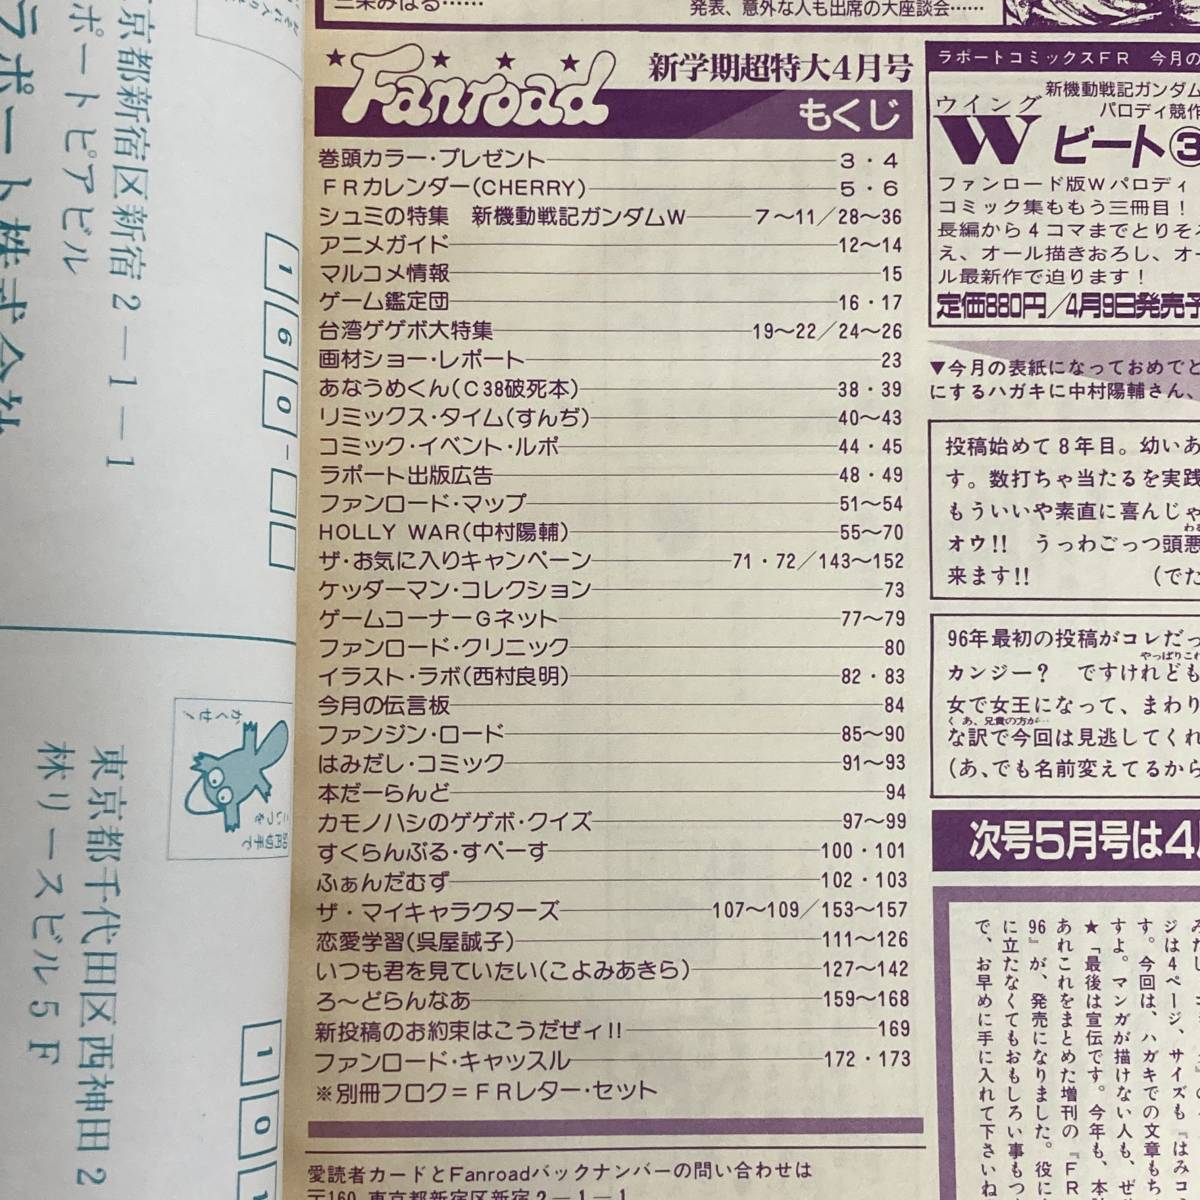 発表、意外な人も出席の大座談会……
Fanroad
新学期超特大4月号
もくじ
巻頭カラー・プレゼント 3・4
FRカレンダー(CHERRY) 5・6
シュミの特集 新機動戦記ガンダムW 7〜11/28〜36
アニメガイド 12〜14
マルコメ情報 15
ゲーム鑑定団 16・17
台湾ゲゲボ大特集 19〜22/24〜26
画材ショー・レポート 23
あなうめくん(C38破死本) 38・39
リミックス・タイム(すんぢ) 40〜43
コミック・イベント・ルポ 44・45
ラポート出版広告 48・49
ファンロード・マップ 51〜54
HOLLY WAR(中村陽輔) 55〜70
ザ・お気に入りキャンペーン 71・72/143〜152
ケッダーマン・コレクション 73
ゲームコーナーGネット 77〜79
ファンロード・クリニック 80
イラスト・ラボ(西村良明) 82・83
今月の伝言板 84
ファンジン・ロード 85〜90
はみだし・コミック 91〜93
本だーらんど 94
カモノハシのゲゲボ・クイズ 97〜99
すくらんぶる・すぺーす 100・101
ふぁんだむず 102・103
ザ・マイキャラクターズ 107〜109/153〜157
恋愛学習(呉屋誠子) 111〜126
いつも君を見ていたい(こよみあきら) 127〜142
ろ〜どらんなあ 159〜168
新投稿のお約束はこうだぜィ!! 169
ファンロード・キャッスル 172・173
※別冊フロク=FRレター・セット
愛読者カードとFanroadバックナンバーの問い合わせは
〒160 東京都新宿区新宿2-1-1
ラポートコミックスFR 今月の
新機動戦記ガンダム
パロディ競作
ウイング
W ビート③
ファンロード版Wパロディ
コミック集ももう三冊目!
長編から4コマまでとりそろ
え、オール描きおろし、オー
ル最新作で迫ります!
定価880円/4月9日発売予
▼今月の表紙になっておめでと
にするハガキに中村陽輔さん、
投稿始めて8年目。幼いあ
す。数打ちゃ当たるを実践
もういいや素直に喜んじゃ
オウ!! うっわごっつ頭悪
来ます!! (でた
96年最初の投稿がコレだっ
やっぱりこれ
カンジー? ですけれども
女で女王になって、まわり
くあ、兄貴の方が…
な訳で今回は見逃してくれ
(あ、でも名前変えてるから
次号5月号は4
ジは4ページ、サイズも『はみコ
す。今回は、ハガキでの文章もち
すよ。マンガが描けない人も、ぜ
★「最後は宣伝です。今年も、本
あれこれをまとめた増刊の『FR
96』が、発売になりました。役に
に立たなくてもおもしろい事もつ
で、お早めに手に入れて下さいね
京都新宿区新宿2-1-1
ポートピアビル
ラポート株式会社
160-
かくせ!
こいつを
切手で
東京都千代田区西神田2
林リースビル5F
101